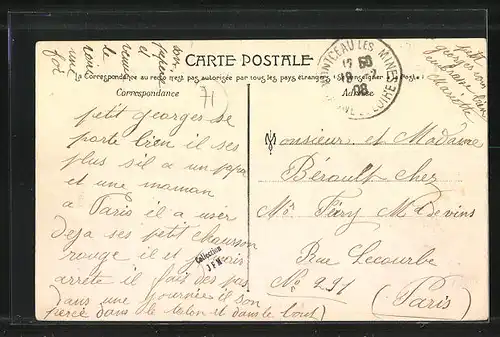 CARTE POSTALE
La Correspondance au recto n'est pas autorisée par tous les pays étrangers (Se renseigner à la Poste.)
Correspondance
Adresse
71
petit georges se
porte bien il ses
plus s'il a un papa
et une maman
a Paris il a user
deja ses petit chausson
rouge il et jamais
arrete il fait des pas
dans une journée il son
percé dans le talon et dans le bout
MONTCEAU LES MINES
SAONE ET LOIRE
08
Monsieur et Madame
Bérault chez
Mr Féry Md de vins
Rue Lecourbe
No 291
(Paris)
Collection
J F M